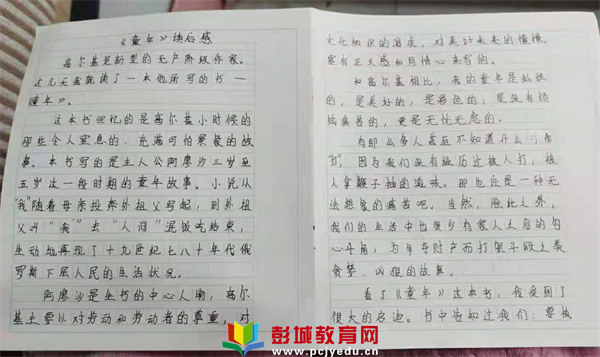 《童年》读后感
高尔基是新型的无产阶级作家。
这几天我就读了一本他所写的书—
《童年》。
这本书回忆的是高尔基小时候的
那些令人窒息的，充满可怕景象的故
事。本书写的是主人公阿廖沙三岁至
五岁这一段时期的童年故事。小说从
"我"随着母亲投奔外祖父写起，到外祖
父叫"我"去"人间"混饭吃结束，
生动地再现了十九世纪七八十年代俄
罗斯下层人民的生活状况。
阿廖沙是全书的中心人物，高尔
基主要以对劳动和劳动者的尊重，对
文化知识的渴求，对美好未来的憧憬，
富有正义感和同情心来写的。
和高尔基相比，我的童年是灿烂
的，是美好的，是彩色的，是没有烦
恼痛苦的，更是无忧无虑的。
有那么多人甚至不知道什么叫作
"打"，因为我们没有经历过被人打，被
人拿鞭子抽的滋味。那也许是一种无
法想象的痛苦吧。当然，除此之外，
我们的生活中也很少有家人之间的勾
心斗角，为争夺财产而打架斗殴之类
贪婪、凶狠的故事。
看了《童年》这本书，我受到了
很大的启迪。书中告知过我们：要
彭城教育网
www.pcjyedu.cn